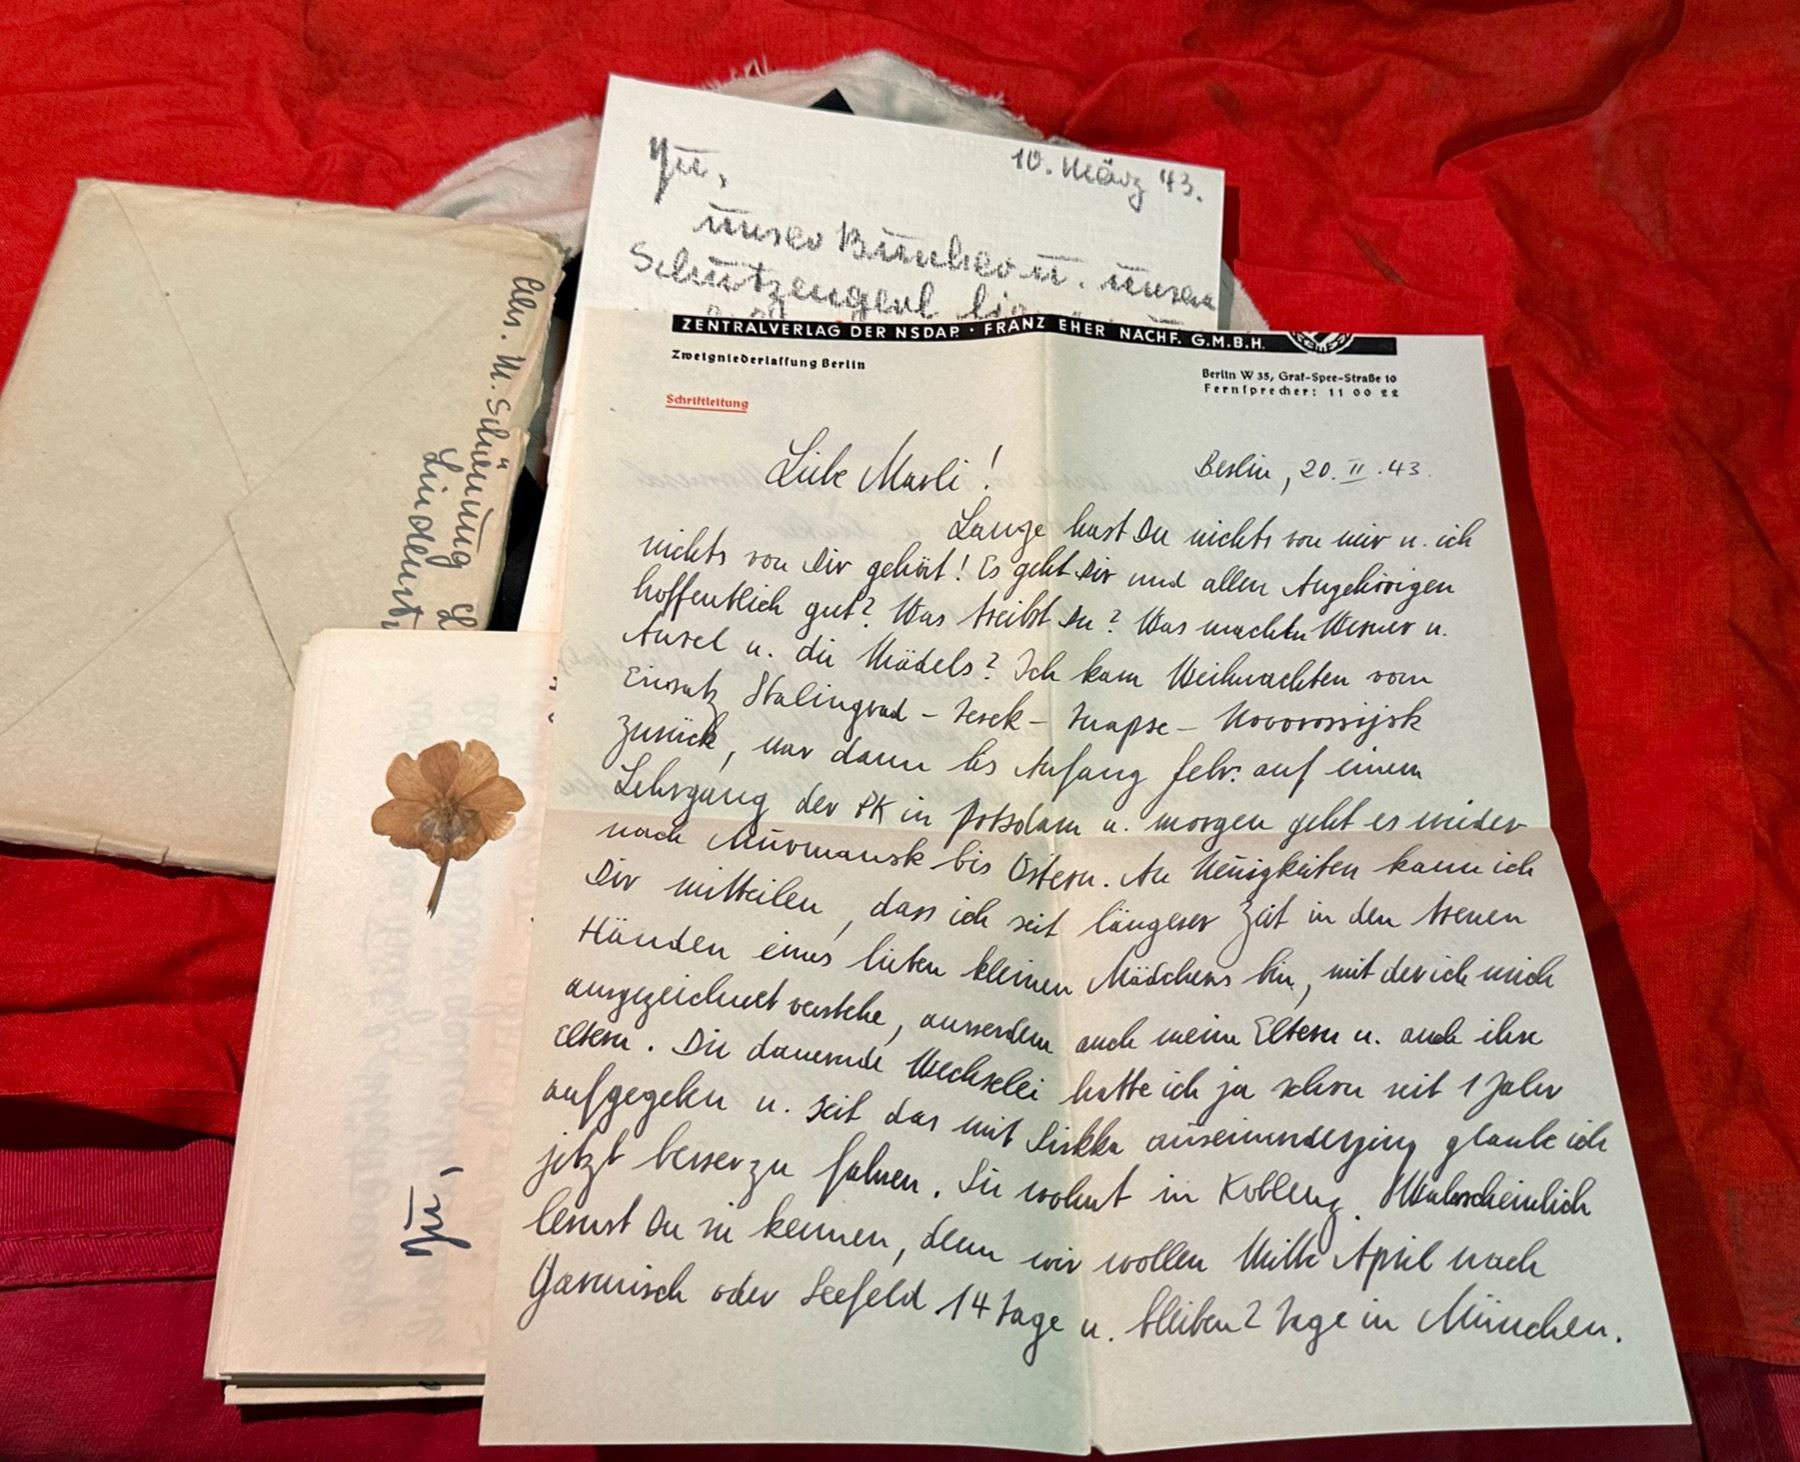 Abs. M. Schönung
Lindenst
Du,
10. März 43.
unser Bunker u. unsere
Schutzengerl
ZENTRALVERLAG DER NSDAP. · FRANZ EHER NACHF. G.M.B.H.
Zweigniederlassung Berlin
Berlin W 35, Graf-Spee-Straße 10
Fernsprecher: 11 00 22
Schriftleitung
Liebe Marli!
Berlin, 20. II. 43.
Lange hast Du nichts von mir u. ich
nichts von Dir gehört! Es geht Dir und allen Angehörigen
hoffentlich gut? Was treibst Du? Was machen Werner u.
Aurel u. die Mädels? Ich kam Weihnachten vom
Einsatz Stalingrad – Terek – Tuapse – Novorossijsk
zurück, war dann bis Anfang Febr. auf einem
Lehrgang der PK in Potsdam u. morgen geht es wieder
nach Murmansk bis Ostern. An Neuigkeiten kann ich
Dir mitteilen, dass ich seit längerer Zeit in den treuen
Händen eines lieben kleinen Mädchens bin, mit der ich mich
ausgezeichnet verstehe, ausserdem auch meine Eltern u. auch ihre
Eltern. Die dauernde Wechselei hatte ich ja schon seit 1 Jahr
aufgegeben u. seit das mit Sirkka auseinanderging glaube ich
jetzt besser zu fahren. Sie wohnt in Koblenz. Wahrscheinlich
lernst Du sie kennen, denn wir wollen Mitte April nach
Garmisch oder Seefeld 14 Tage u. bleiben 2 Tage in München.
Du,